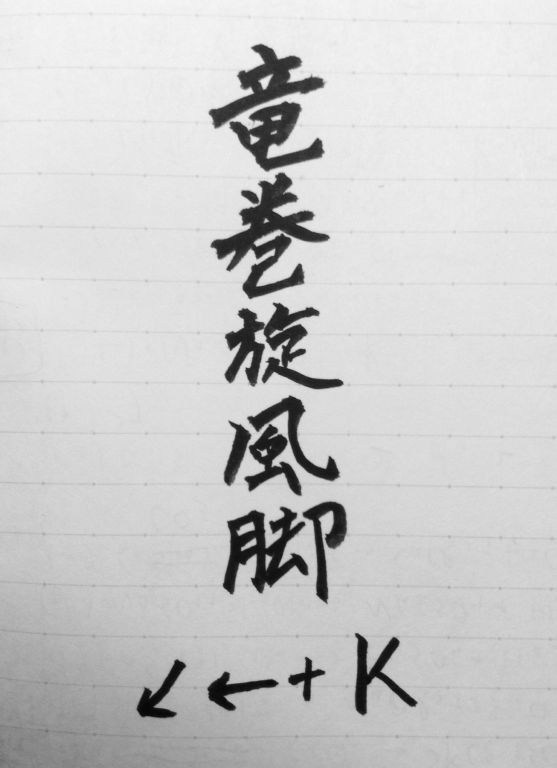 竜巻旋風脚
↙←+K